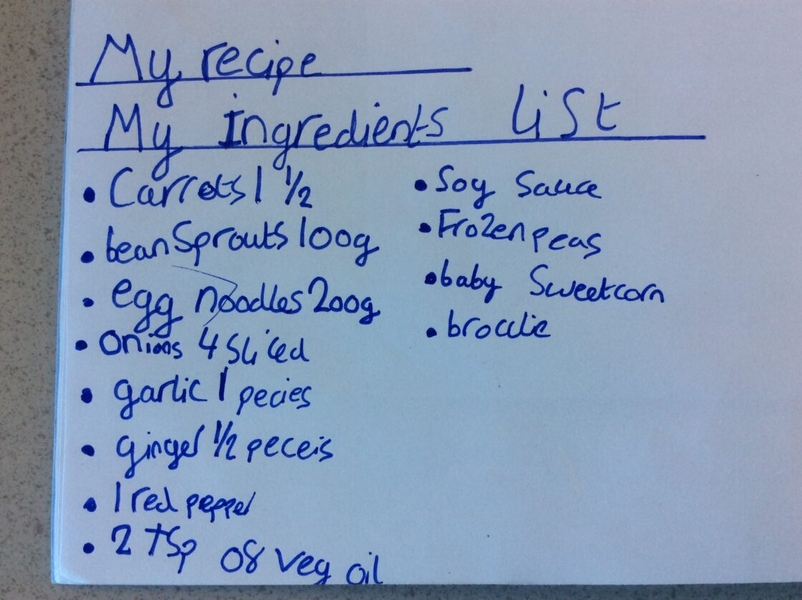 My recipe
My Ingredients list
• Carrots 1 1/2
• bean Sprouts 100g
• egg noodles 200g
• onions 4 Sliced
• garlic 1 pecies
• ginger 1/2 peceis
• 1 red pepper
• 2 Tsp of veg oil
• Soy Sauce
• Frozen peas
• baby Sweetcorn
• broclie